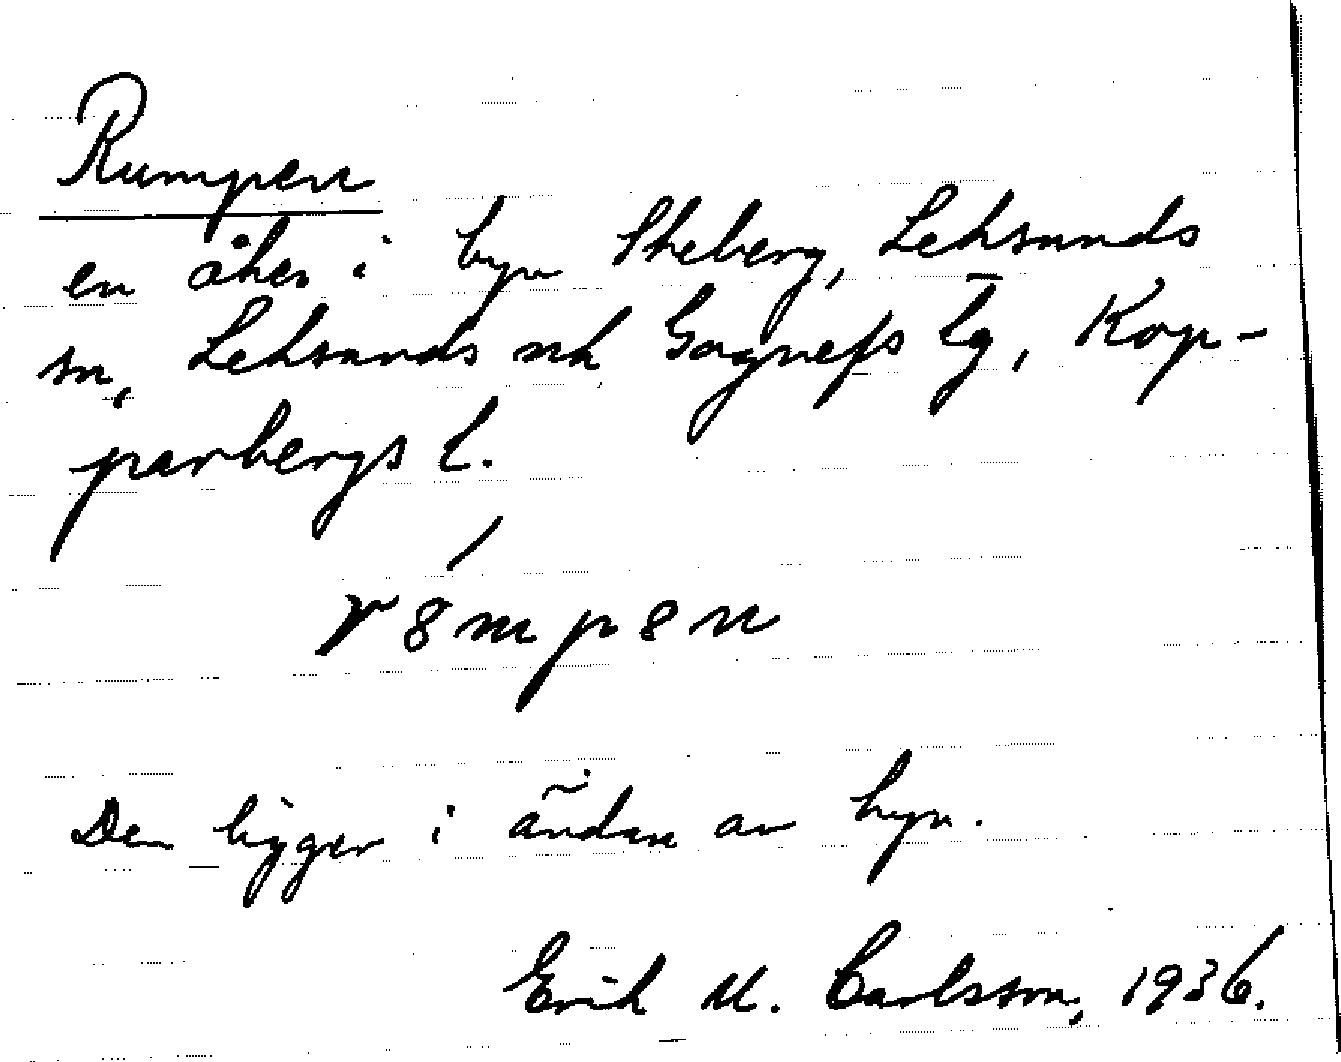 Rumpen
en åker i byn Skeberg, Leksands
sn, Leksands och Gagnefs tg, Kop-
parbergs l.
r8mp8n
Den ligger i ändan av byn.
Erik M. Carlsson, 1936.